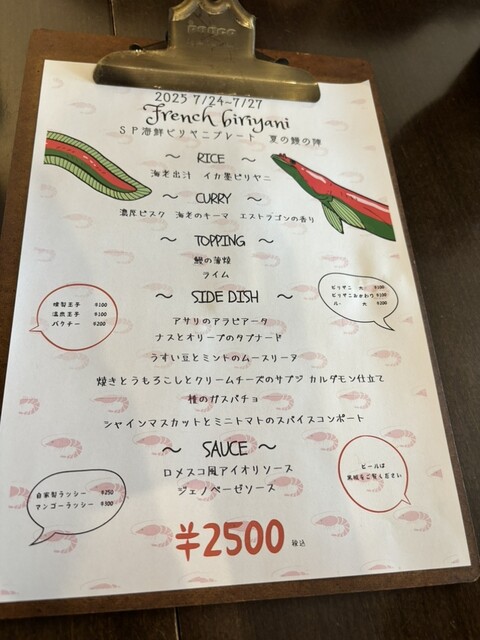 2025 7/24~7/27
French biriyani
SP海鮮ビリヤニプレート 夏の鰻の陣
～ RICE ～
海老出汁 イカ墨ビリヤニ
～ CURRY ～
濃厚ビスク 海老のキーマ エストラゴンの香り
～ TOPPING ～
鰻の蒲焼
ライム
～ SIDE DISH ～
燻製玉子 ¥100
温泉玉子 ¥100
パクチー ¥200
ビリヤニ 大 ¥100
ビリヤニおかわり ¥100
ルー 大 ¥200
アサリのアラビアータ
ナスとオリーブのタプナード
うすい豆とミントのムースリーヌ
焼きとうもろこしとクリームチーズのサブジ カルダモン仕立て
桃のガスパチョ
シャインマスカットとミニトマトのスパイスコンポート
～ SAUCE ～
ロメスコ風アイオリソース
ジェノベーゼソース
自家製ラッシー ¥250
マンゴーラッシー ¥300
ビールは
黒板をご覧ください
¥2500 税込